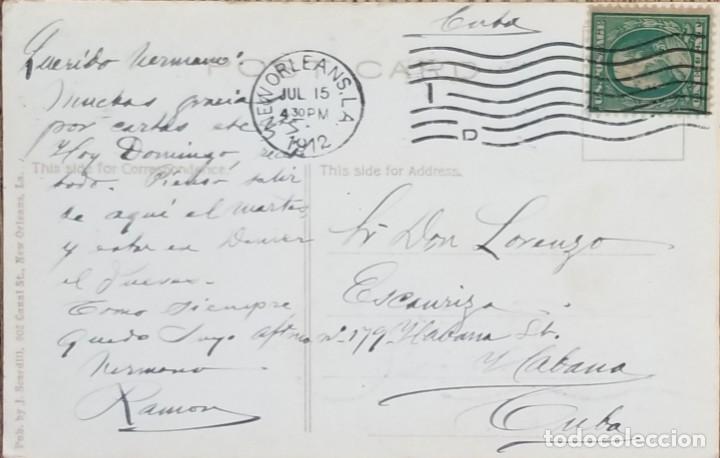 Cuba
Querido Hermano:
POST CARD
NEW ORLEANS, LA.
JUL 15
4 30 PM
1912
1
D
Muchas gracias
por cartas etc etc.
Hoy Domingo
This side for Correspondence.
This side for Address.
todo. Pienso salir
de aquí el martes
y estar en Denver
el Jueves.
Como siempre
quedo Suyo aftmo
Hermano
Ramon
Sr Don Lorenzo
Escauriza
no. 179 Habana St.
Habana
Cuba
Pub. by J. Scordill, 902 Canal St., New Orleans, La.
todocoleccion.net